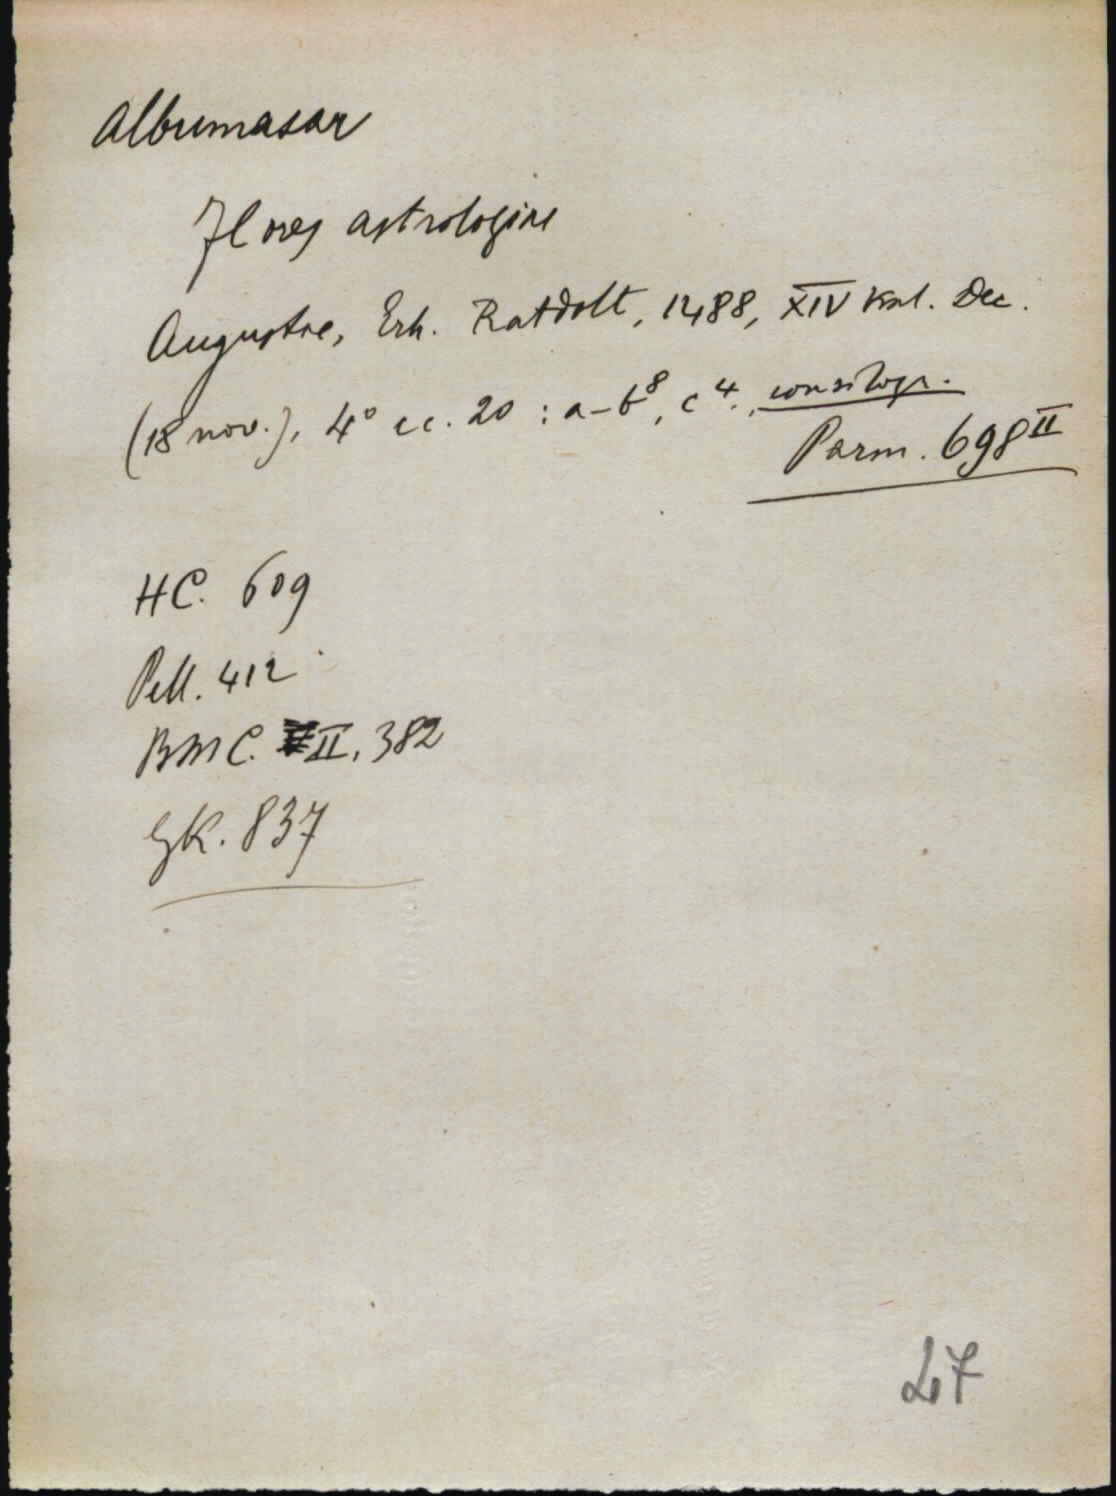 Albumasar
Flores astrologiae
Augustae, Erh. Ratdolt, 1488, XIV Kal. Dec.
(18 nov.), 4° cc. 20 : a-b⁸, c⁴.,
Parm. 698 II
HC. 609
Pell. 412
BMC. II, 382
GK. 837
27